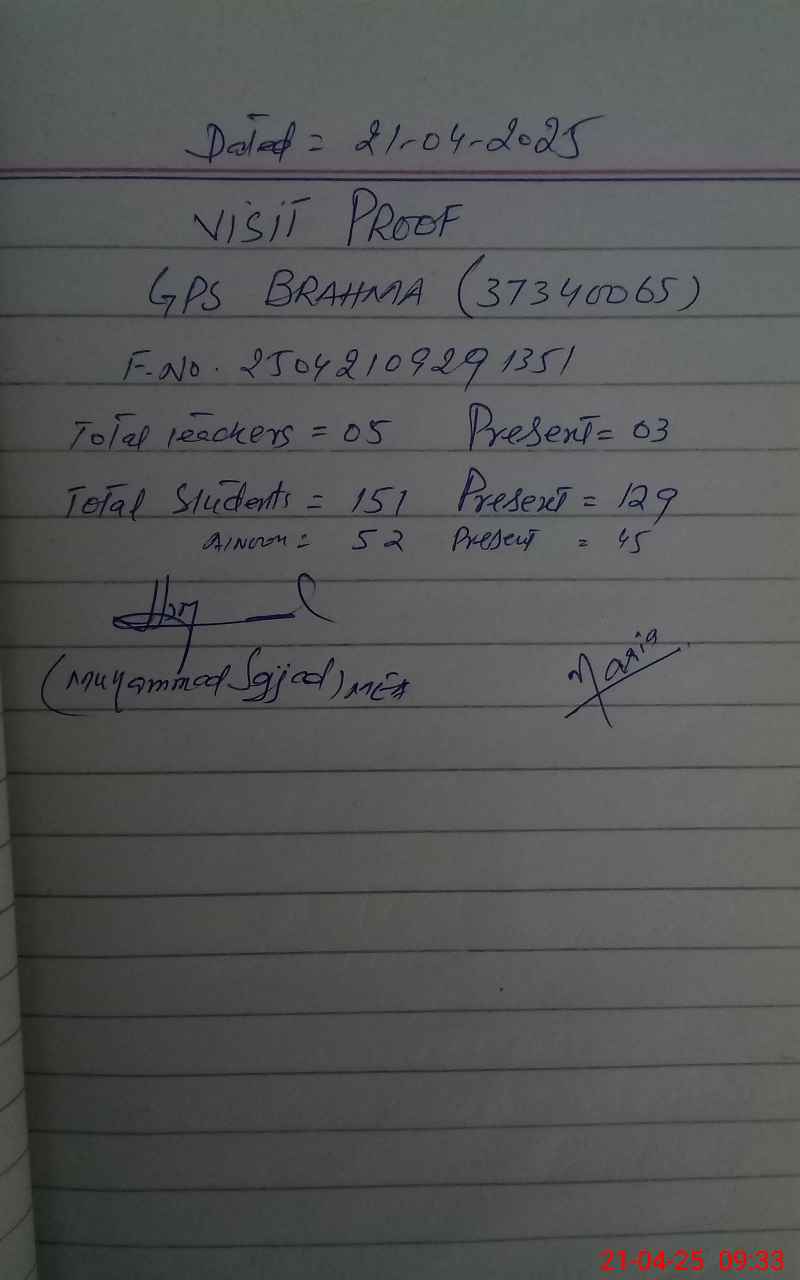 Dated = 21-04-2025
VISIT PROOF
GPS BRAHMA (37340065)
F.No. 25042109291351
Total Teachers = 05 Present = 03
Total Students = 151 Present = 129
52 Present = 45
(Muhammad Sajjad) MEA
Maria
21-04-25 09:33